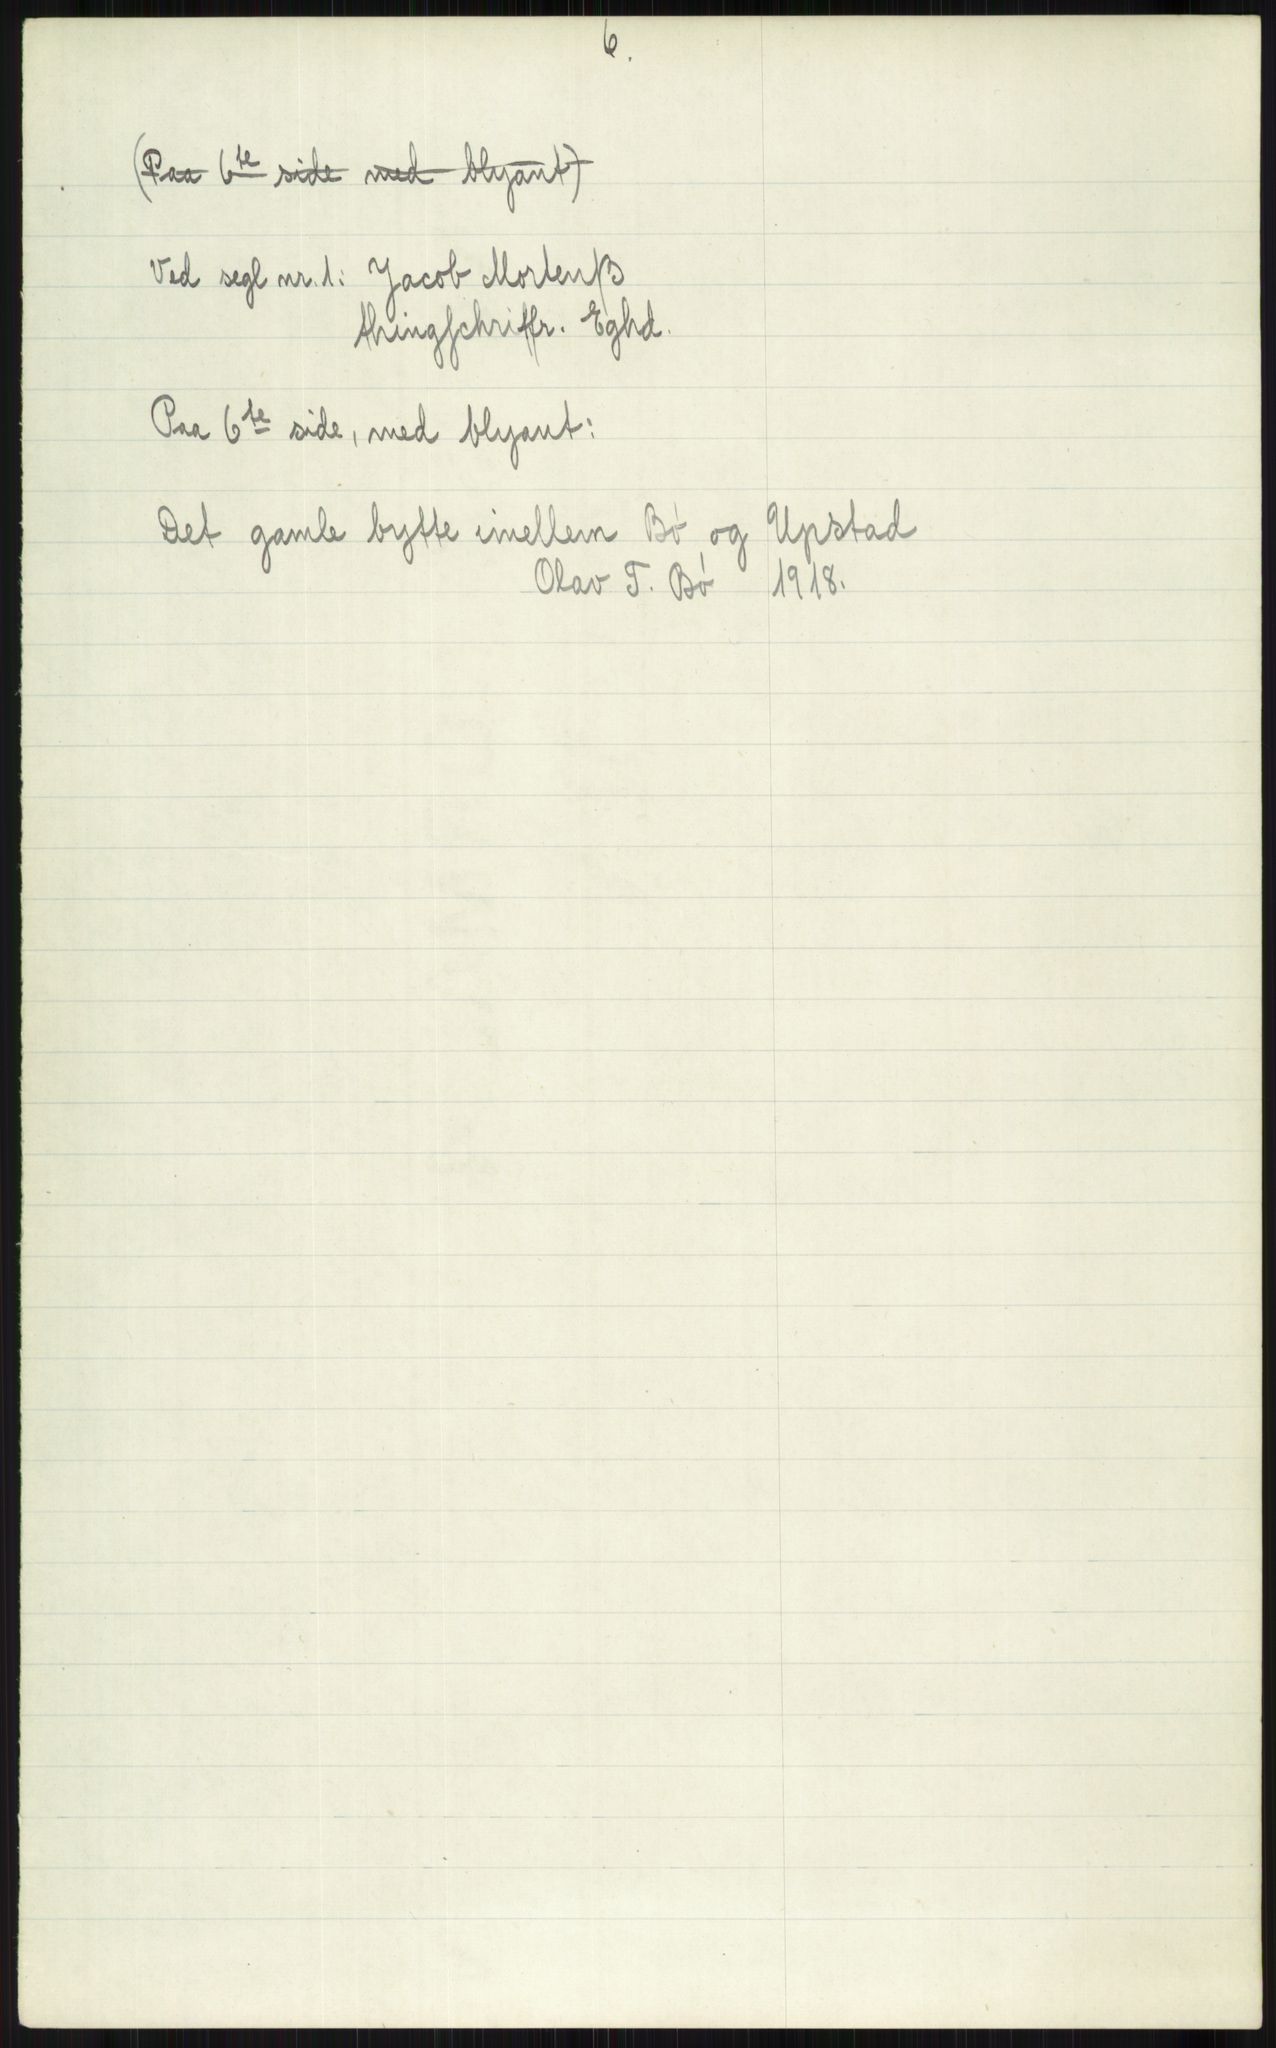 6.
(Paa 6te side med blyant)
Ved segl nr. 1: Jacob Mortenß
thingschriffr. Eghd.
Paa 6te side, med blyant:
Det gamle bytte imellem Bø og Upstad
Olav T. Bø 1918.